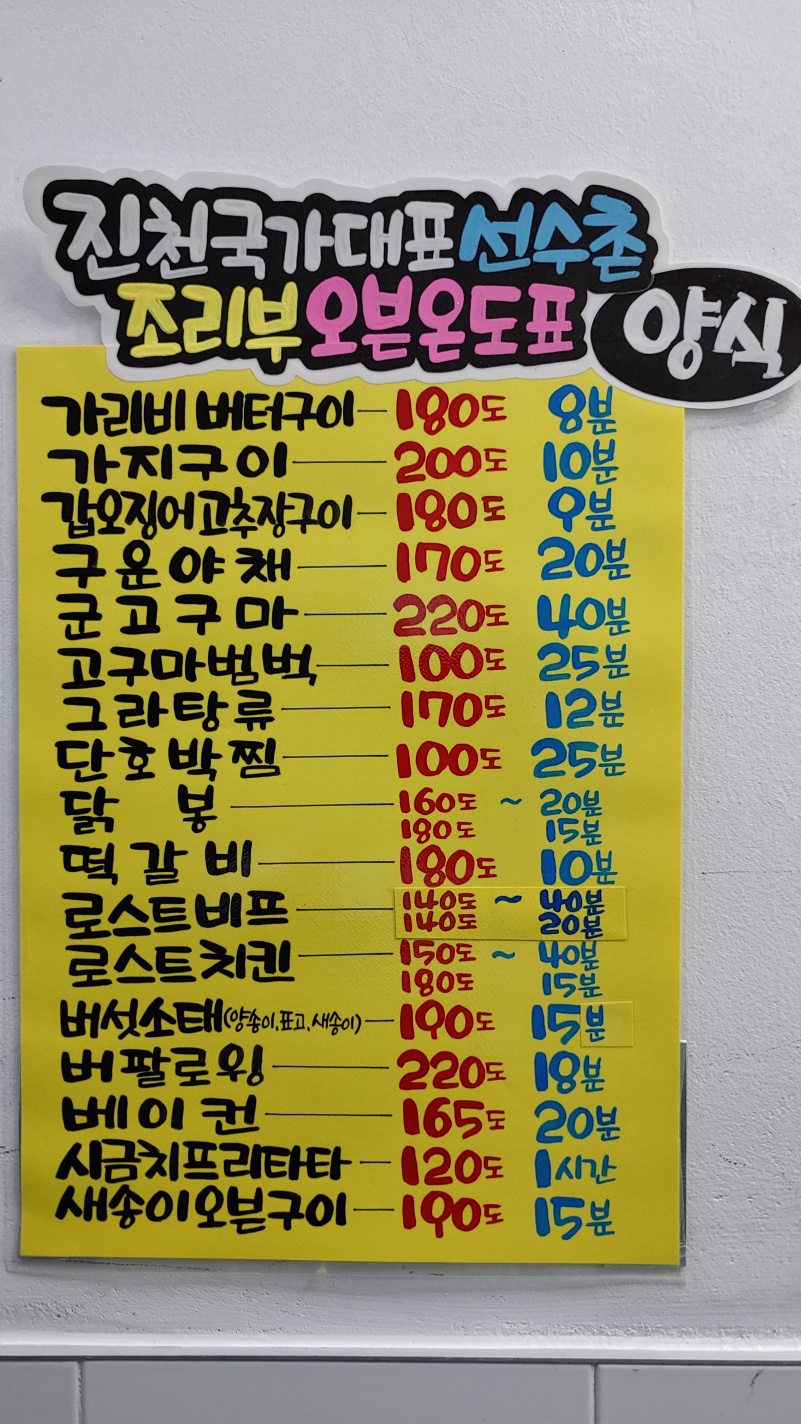 진천국가대표선수촌
조리부오븐온도표 양식
가리비 버터구이 180도 8분
가지구이 200도 10분
갑오징어고추장구이 180도 9분
구운야채 170도 20분
군고구마 220도 40분
고구마범벅 100도 25분
그라탕류 170도 12분
단호박찜 100도 25분
닭봉 160도 ~ 20분
180도 15분
떡갈비 180도 10분
로스트비프 140도 ~ 40분
140도 20분
로스트치킨 150도 ~ 40분
180도 15분
버섯소태(양송이.표고.새송이) 190도 15분
버팔로윙 220도 18분
베이컨 165도 20분
시금치프리타타 120도 1시간
새송이오븐구이 190도 15분